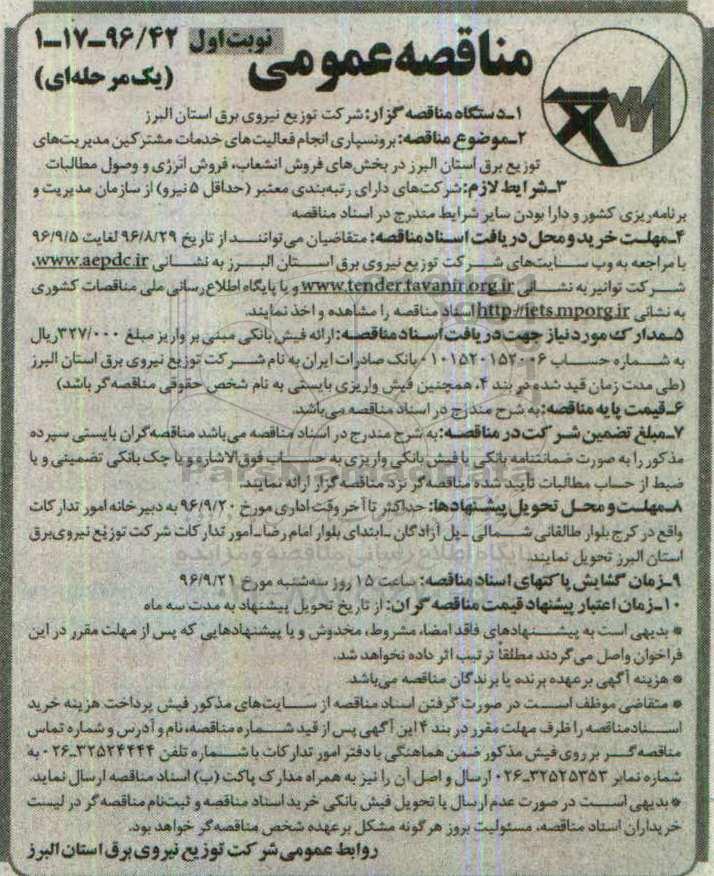 مناقصه عمومی نوبت اول ۹۶/۴۲-۱۷-۱
(یک مرحله‌ای)
۱-دستگاه مناقصه گزار: شرکت توزیع نیروی برق استان البرز
۲-موضوع مناقصه: برونسپاری انجام فعالیت‌های خدمات مشترکین مدیریت‌های
توزیع برق استان البرز در بخش‌های فروش انشعاب، فروش انرژی و وصول مطالبات
۳-شرایط لازم: شرکت‌های دارای رتبه‌بندی معتبر (حداقل ۵ نیرو) از سازمان مدیریت و
برنامه‌ریزی کشور و دارا بودن سایر شرایط مندرج در اسناد مناقصه
۴-مهلت خرید و محل دریافت اسناد مناقصه: متقاضیان می‌توانند از تاریخ ۹۶/۸/۲۹ لغایت ۹۶/۹/۵
با مراجعه به وب سایت‌های شرکت توزیع نیروی برق استان البرز به نشانی www.aepdc.ir،
شرکت توانیر به نشانی www.tender.tavanir.org.ir و یا پایگاه اطلاع‌رسانی ملی مناقصات کشوری
به نشانی http://iets.mporg.ir اسناد مناقصه را مشاهده و اخذ نمایند.
۵-مدارک مورد نیاز جهت دریافت اسناد مناقصه: ارائه فیش بانکی مبنی بر واریز مبلغ ۳۲۷/۰۰۰ریال
به شماره حساب ۰۱۰۱۵۲۰۱۵۲۰۰۶ بانک صادرات ایران به نام شرکت توزیع نیروی برق استان البرز
(طی مدت زمان قید شده در بند ۴، همچنین فیش واریزی بایستی به نام شخص حقوقی مناقصه‌گر باشد)
۶-قیمت پایه مناقصه: به شرح مندرج در اسناد مناقصه می‌باشد.
۷-مبلغ تضمین شرکت در مناقصه: به شرح مندرج در اسناد مناقصه می‌باشد مناقصه‌گران بایستی سپرده
مذکور را به صورت ضمانتنامه بانکی یا فیش بانکی واریزی به حساب فوق‌الاشاره و یا چک بانکی تضمینی و یا
ضبط از حساب مطالبات تأیید شده مناقصه‌گر نزد مناقصه‌گزار ارائه نمایند.
۸-مهلت و محل تحویل پیشنهادها: حداکثر تا آخر وقت اداری مورخ ۹۶/۹/۲۰ به دبیرخانه امور تدارکات
واقع در کرج بلوار طالقانی شمالی -پل آزادگان -ابتدای بلوار امام رضا-امور تدارکات شرکت توزیع نیروی‌برق
استان البرز تحویل نمایند.
۹-زمان گشایش پاکتهای اسناد مناقصه: ساعت ۱۵ روز سه‌شنبه مورخ ۹۶/۹/۲۱
۱۰-زمان اعتبار پیشنهاد قیمت مناقصه گران: از تاریخ تحویل پیشنهاد به مدت سه ماه
* بدیهی است به پیشنهادهای فاقد امضا، مشروط، مخدوش و یا پیشنهادهایی که پس از مهلت مقرر در این
فراخوان واصل می‌گردند مطلقاً ترتیب اثر داده نخواهد شد.
* هزینه آگهی برعهده برنده یا برندگان مناقصه می‌باشد.
* متقاضی موظف است در صورت گرفتن اسناد مناقصه از سایت‌های مذکور فیش پرداخت هزینه خرید
اسناد مناقصه را ظرف مهلت مقرر در بند ۴ این آگهی پس از قید شماره مناقصه، نام و آدرس و شماره تماس
مناقصه‌گر بر روی فیش مذکور ضمن هماهنگی با دفتر امور تدارکات با شماره تلفن ۳۲۵۲۴۴۴۴-۰۲۶ به
شماره نمابر ۳۲۵۲۵۳۵۳-۰۲۶ ارسال و اصل آن را نیز به همراه مدارک پاکت (ب) اسناد مناقصه ارسال نماید.
* بدیهی است در صورت عدم ارسال یا تحویل فیش بانکی خرید اسناد مناقصه و ثبت‌نام مناقصه‌گر در لیست
خریداران اسناد مناقصه، مسئولیت بروز هرگونه مشکل برعهده شخص مناقصه‌گر خواهد بود.
روابط عمومی شرکت توزیع نیروی برق استان البرز